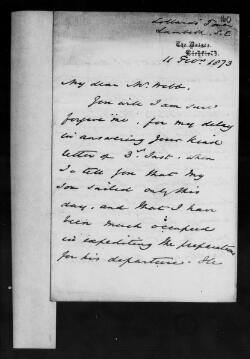 Lollards' Tower
Lambeth. S.E.
The Palace,
Lichfield.
11 Feby. 1873
My dear Mr. Webb.
You will I am sure
forgive me, for my delay
in answering your kind
letter of 3d. Inst. when
I tell you that my
Son sailed only this
day, and that I have
been much occupied
in expediting the preparations
for his departure. He